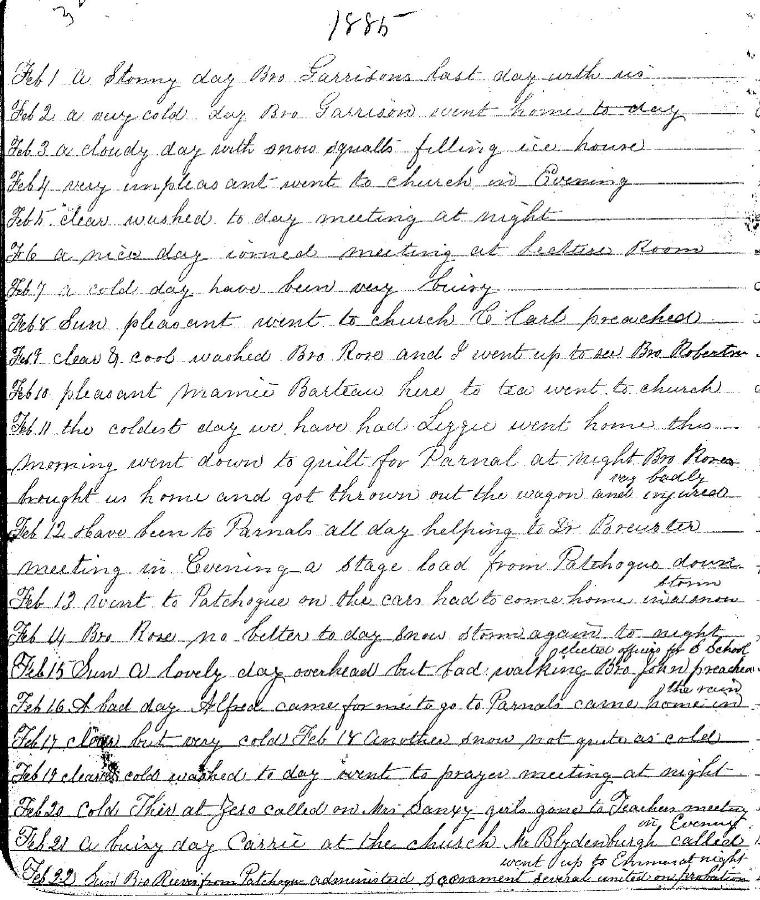 3
1885
Feb 1 a Stormy day Bro Garrisons last day with us
Feb 2 a very cold day Bro Garrison went home to day
Feb 3 a cloudy day with snow squalls filling ice house
Feb 4 very unpleasant went to church in Evening
Feb 5 clear washed to day meeting at night
Feb 6 a nice day ironed meeting at lecture Room
Feb 7 a cold day have been very buisy
Feb 8 Sun pleasant went to church C Carl preached
Feb 9 clear & cool washed Bro Rose and I went up to see Bro Robertson
Feb 10 pleasant Mamie Barteau here to tea went to church
Feb 11 the coldest day we have had Lizzie went home this
morning went down to quilt for Parnal at night Bro Rose
very badly
brought us home and got thrown out the wagon and injured
Feb 12 Have been to Parnals all day helping to Dr Brewster
meeting in Evening a stage load from Patchogue down
storm
Feb 13 went to Patchogue on the cars had to come home in a snow
Feb 14 Bro Rose no better to day snow storm again to night
elected officers for S School
Feb 15 Sun a lovely day overhead but bad walking Bro John preached
the rain
Feb 16 A bad day Alfred came for me to go to Parnals came home in
Feb 17 clear but very cold Feb 18 Another snow not quite as cold
Feb 19 clear cold washed to day went to prayer meeting at night
Feb 20 cold This at called on Mrs girls gone to Teachers meeting
in Evening
Feb 21 a buisy day Carrie at the church Mr Blydenburgh called
went up to Emma at night
Feb 22 Sun Bro Reeves from Patchogue administerd sacrament several united on probation